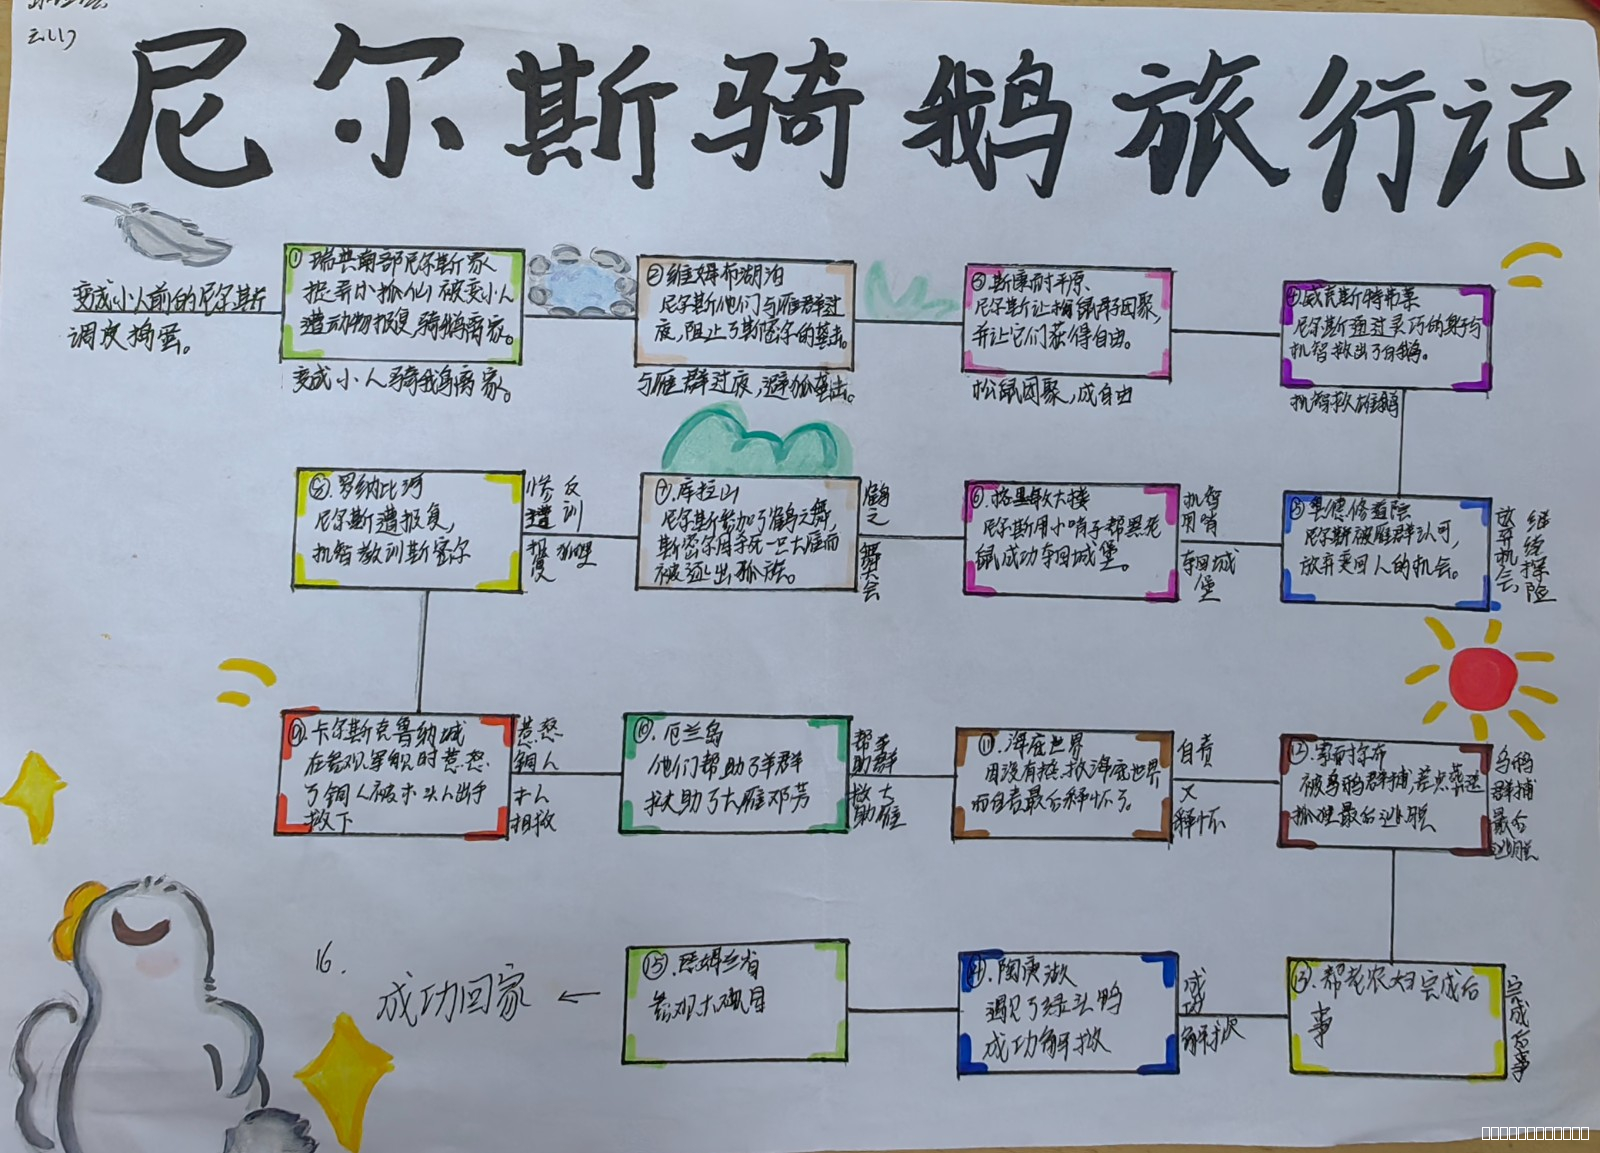 尼尔斯骑鹅旅行记
变成小人前的尼尔斯
调皮捣蛋。
① 瑞典南部尼尔斯家
捉弄小狐仙 被变小人
遭动物报复，骑鹅离家。
变成小人骑鹅离家。
② 维姆布湖泊
尼尔斯他们与雁群过
夜，阻止了斯密尔的袭击。
与雁群过夜，避狐袭击。
③ 斯康耐平原
尼尔斯让松鼠母子团聚，
并让它们获得自由。
松鼠团聚，成自由
④ 威克斯特布莱
尼尔斯通过灵巧的身手与
机智救出了白鹅。
机智救雄鹅
⑤
尼尔斯被雁群认可，
放弃变回人的机会。
放弃机会
继续探险
⑥ 格里敏大楼
尼尔斯用小哨子帮黑老
鼠成功夺回城堡。
机智
用哨
夺回城
堡
⑦ 库拉山
尼尔斯参加了鹤之舞，
斯密尔因杀死一只大雁而
被逐出狐族。
鹤之舞大会
⑧ 罗纳比河
尼尔斯遭报复，
机智教训斯密尔
惨遭报复
反训狐狸
⑨ 卡尔斯克鲁纳城
在参观军舰时惹怒
了铜人被木头人出手
救下
惹怒
铜人
木人
相救
⑩. 厄兰岛
他们帮助了羊群
救助了大雁邓芬
帮羊
助群
救大
助雁
⑪. 海底世界
因没有拯救海底世界
而自责最后释怀了。
自责
又
释怀
⑫.
被乌鸦群捕，差点葬送
狐狸最后逃脱
乌鸦
群捕
最后
逃脱
⑬. 帮老农妇完成后
事
完成后事
⑭ 陶庚湖
遇见了绿头鸭
成功解救
成功
解救
⑮.
参观大矿目
16.
成功回家 ←